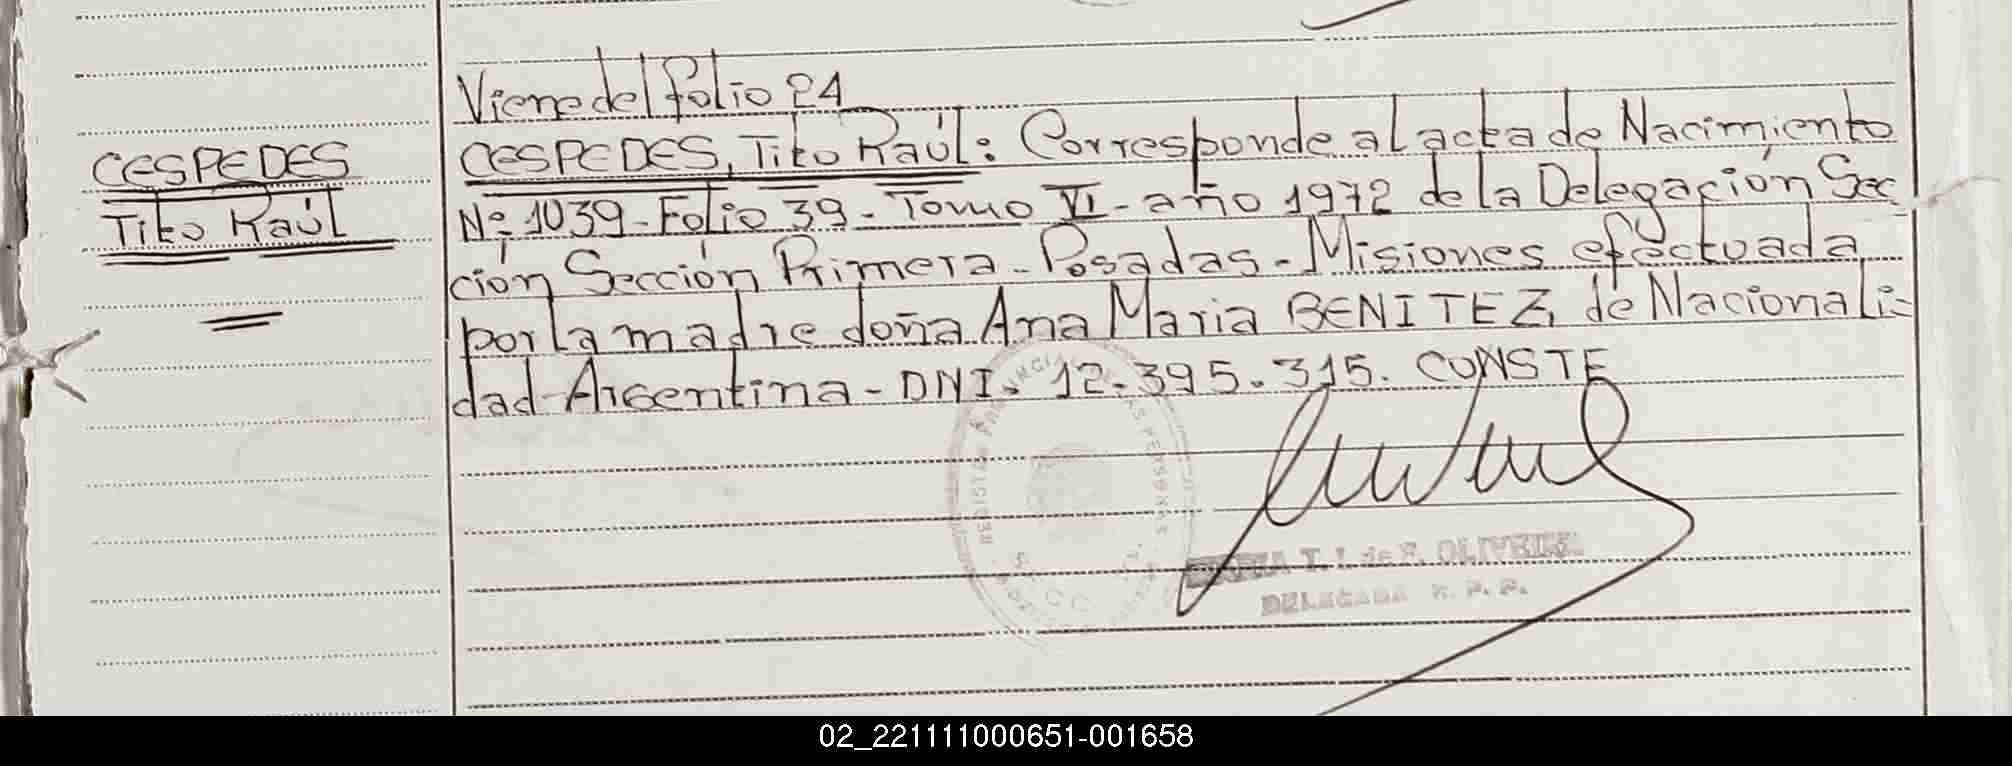 Viene del folio 24
CESPEDES
Tito Raúl
CESPEDES, Tito Raúl: Corresponde al acta de Nacimiento
Nº 1039 - Folio 39 - Tomo VI - año 1972 de la Delegación Sec
ción Sección Primera - Posadas - Misiones efectuada
por la madre doña Ana Maria BENITEZ, de Nacionali=
dad Argentina - DNI. 12.395.315. CONSTE
REGISTRO PROVINCIAL DE LAS PERSONAS
T. I. de F. OLIVEIRA
DELEGADA R. P. P.
02_221111000651-001658